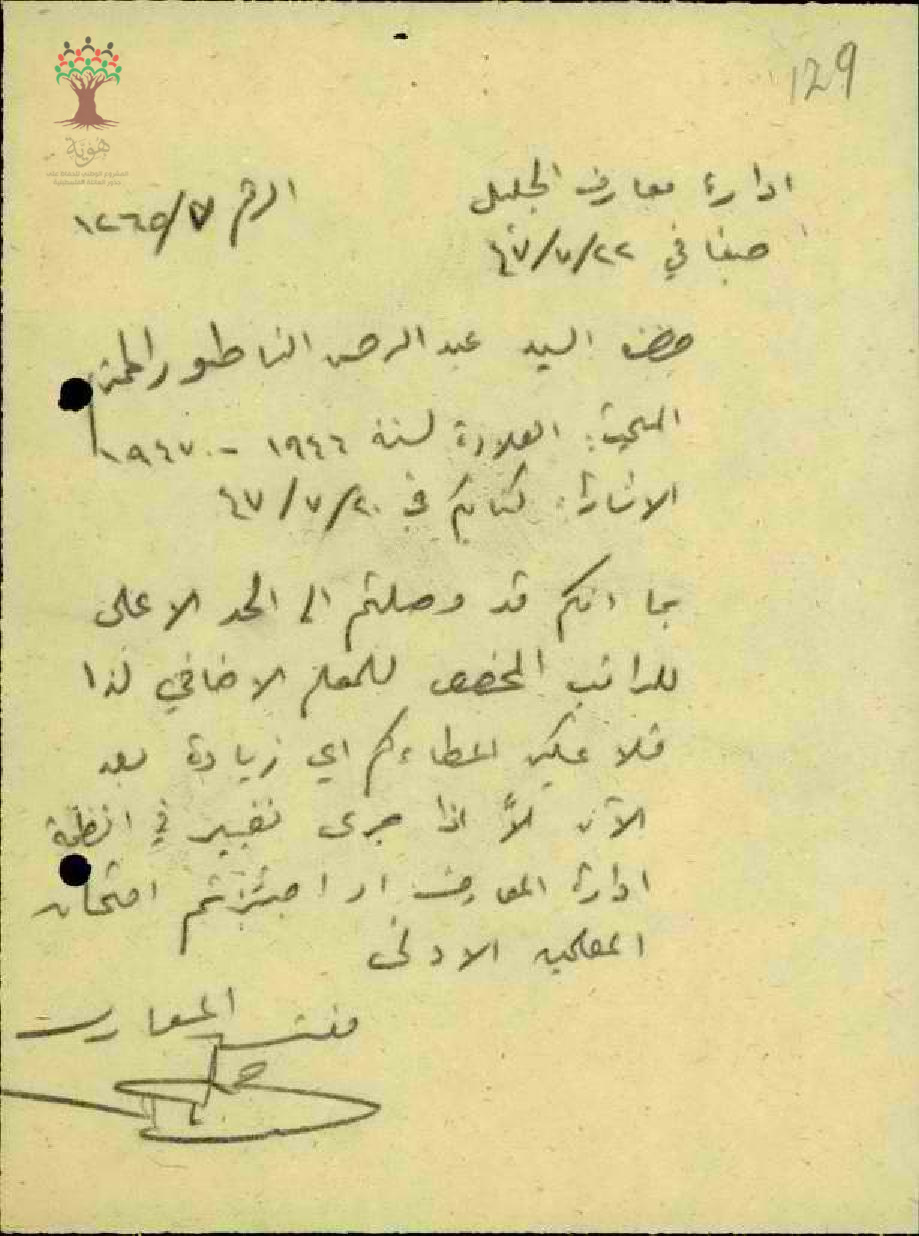 129
هوية
ادارة معارف الجليل
الرقم ١٢٦٥/٧
صفد في ٢٢/٧/٤٧
حضرة السيد عبد الرحمن الناطور المحترم
المبحث: العلاوة لسنة ١٩٤٦ - ١٩٤٧
الاشارة: كتابكم في ٢٠/٧/٤٧
بما انكم قد وصلتم الى الحد الاعلى
للراتب المخصص للمعلم الاضافي لذا
فلا يمكن اعطاءكم اي زيادة بعد
الآن الاّ اذا جرى تغيير في انظمة
ادارة المعارف او اجتزتم امتحان
المعلمين الادنى
مفتش المعارف